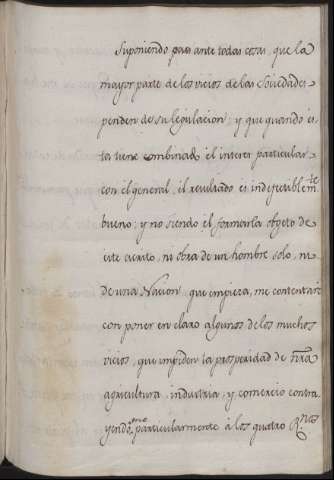 Suponiendo pues ante todas cosas, que la
mayor parte de los vicios de las Sociedades
penden de su legislacion, y que quando es-
ta tiene combinado el interes particular
con el general, el resultado es indefectiblem.te
bueno; y no siendo el formarla objeto de
este escrito, ni obra de un hombre solo, ni
de una Nacion que empieza, me contentaré
con poner en claro algunos de los muchos
vicios, que impiden la prosperidad de ñra
agricultura, industria, y comercio contra
yendome particularmente à los quatro R.nos